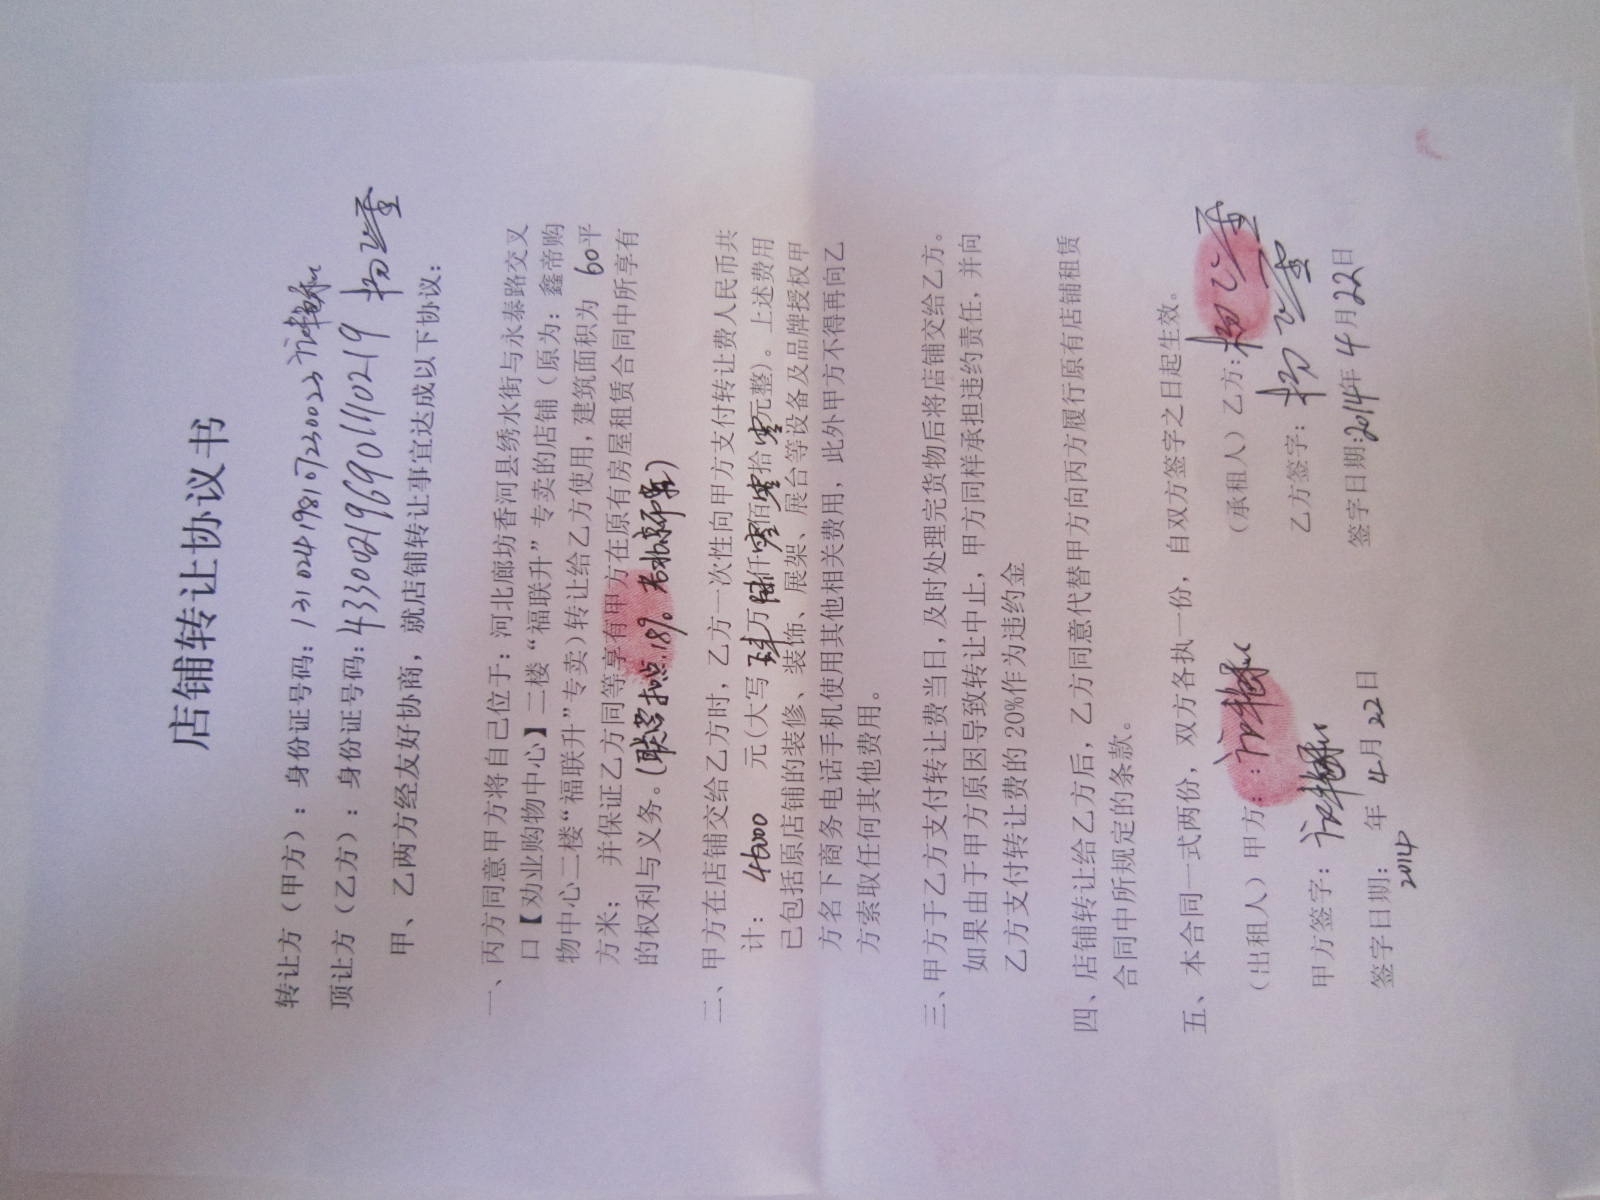 店铺转让协议书
转让方（甲方）：身份证号码：131024198107230023
顶让方（乙方）：身份证号码：433002196901110219
甲、乙两方经友好协商，就店铺转让事宜达成以下协议：
一、丙方同意甲方将自己位于：河北廊坊香河县绣水街与永泰路交叉
口【劝业购物中心】二楼“福联升”专卖的店铺（原为：鑫帝购
物中心二楼“福联升”专卖）转让给乙方使用，建筑面积为 60平
方米； 并保证乙方同等享有甲方在原有房屋租赁合同中所享有
的权利与义务。（联营扣点.18%
二、甲方在店铺交给乙方时，乙方一次性向甲方支付转让费人民币共
计： 46000 元（大写 肆万陆仟零佰零拾零元整）。上述费用
已包括原店铺的装修、装饰、展架、展台等设备及品牌授权甲
方名下商务电话手机使用其他相关费用，此外甲方不得再向乙
方索取任何其他费用。
三、甲方于乙方支付转让费当日，及时处理完货物后将店铺交给乙方。
如果由于甲方原因导致转让中止，甲方同样承担违约责任，并向
乙方支付转让费的 20%作为违约金
四、店铺转让给乙方后，乙方同意代替甲方向丙方履行原有店铺租赁
合同中所规定的条款。
五、本合同一式两份，双方各执一份，自双方签字之日起生效。
（出租人）甲方：（承租人）乙方：
甲方签字： 乙方签字：
签字日期：2014年 4月22日 签字日期：2014年4月22日